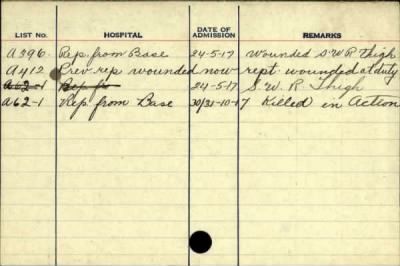 LIST No. HOSPITAL DATE OF ADMISSION REMARKS
A396. Rep. from Base 24-5-17 Wounded S.W.R Thigh
A412 Prev rep wounded now rept. wounded at duty
A62-1 Rep fr 24-5-17 S.W.R Thigh
A62-1 Rep. from Base 30/31-10-17 Killed in Action